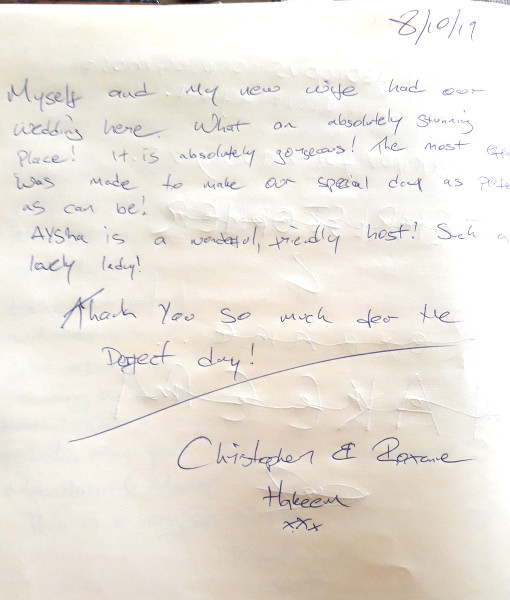 8/10/19
Myself and my new wife had our
wedding here. What an absolutely stunning
place! It is absolutely gorgeous! The most
was made to make our special day as
as can be!
Aysha is a wonderful, friendly host! Such a
lady!
Thank you so much for the
day!
Christopher & Roxane
Hakeem
xxx